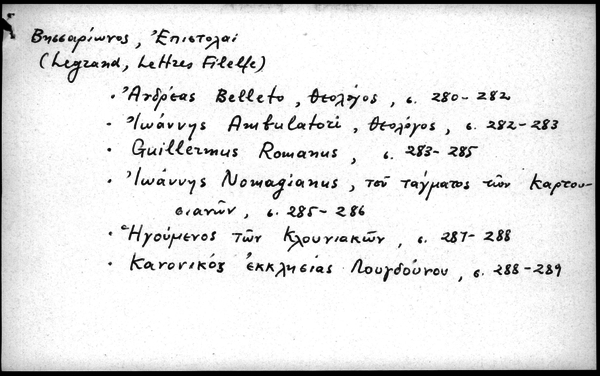 Βησσαρίωνος, Ἐπιστολαί
(Legrand, Lettres Filelfe)
· Ἀνδρέας Belleto, θεολόγος, σ. 280-282
· Ἰωάννης Ambulatori, θεολόγος, σ. 282-283
· Guillermus Romanus, σ. 283-285
· Ἰωάννης Nomagianus, τοῦ τάγματος τῶν Καρτου-
σιανῶν, σ. 285-286
· Ἡγούμενος τῶν Κλουνιακῶν, σ. 287-288
· Κανονικός ἐκκλησίας Λουγδούνου, σ. 288-289